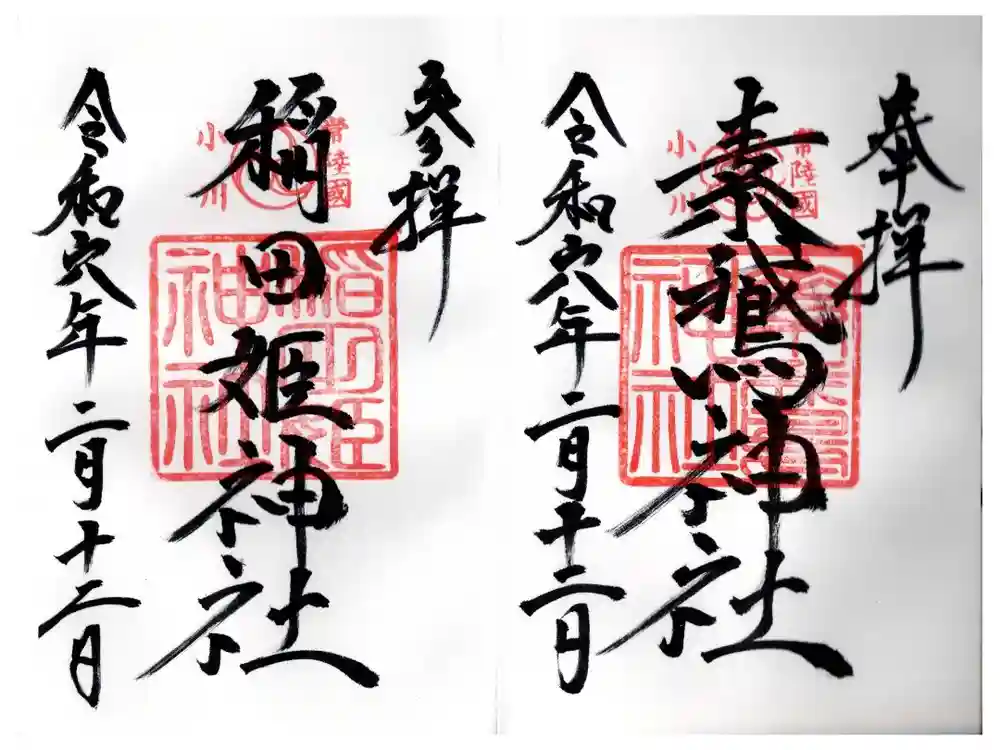 奉拝
常陸國
素鵞神社
小川
令和六年二月十二日
参拝
常陸國
稲田姫神社
小川
令和六年二月十二日